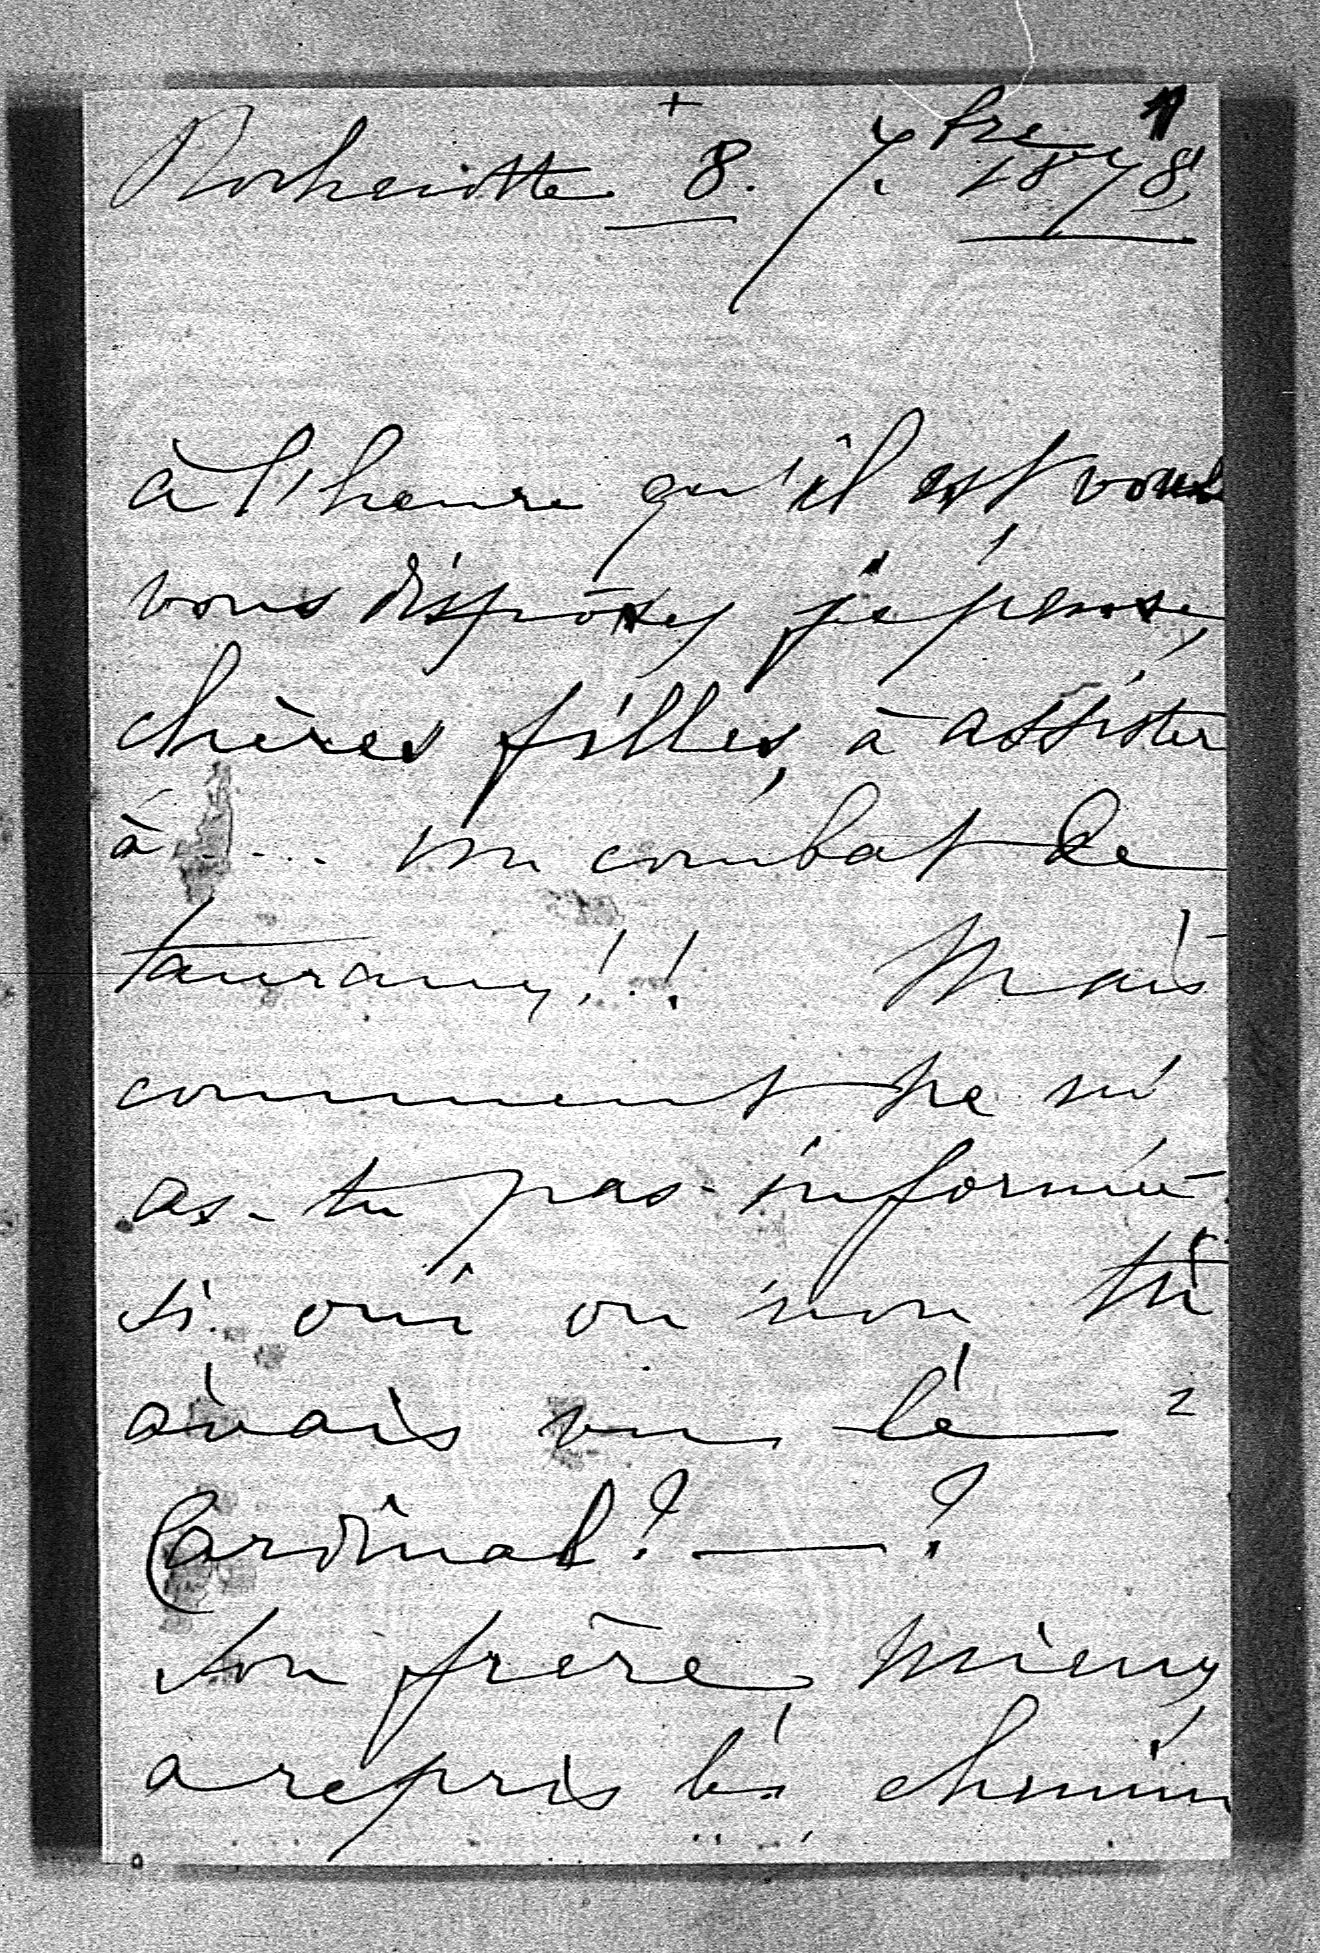 +
Rochecotte 8. 7.bre 1878.
à l'heure qu'il est vous
vous disposez je pense,
chères filles, à assister
à .... un combat de
taureaux!!! Mais
comment ne m'
as-tu pas informée
si oui ou non tu
avais vu le
Cardinal? — ?
Ton frère, mieux,
a repris le chemin